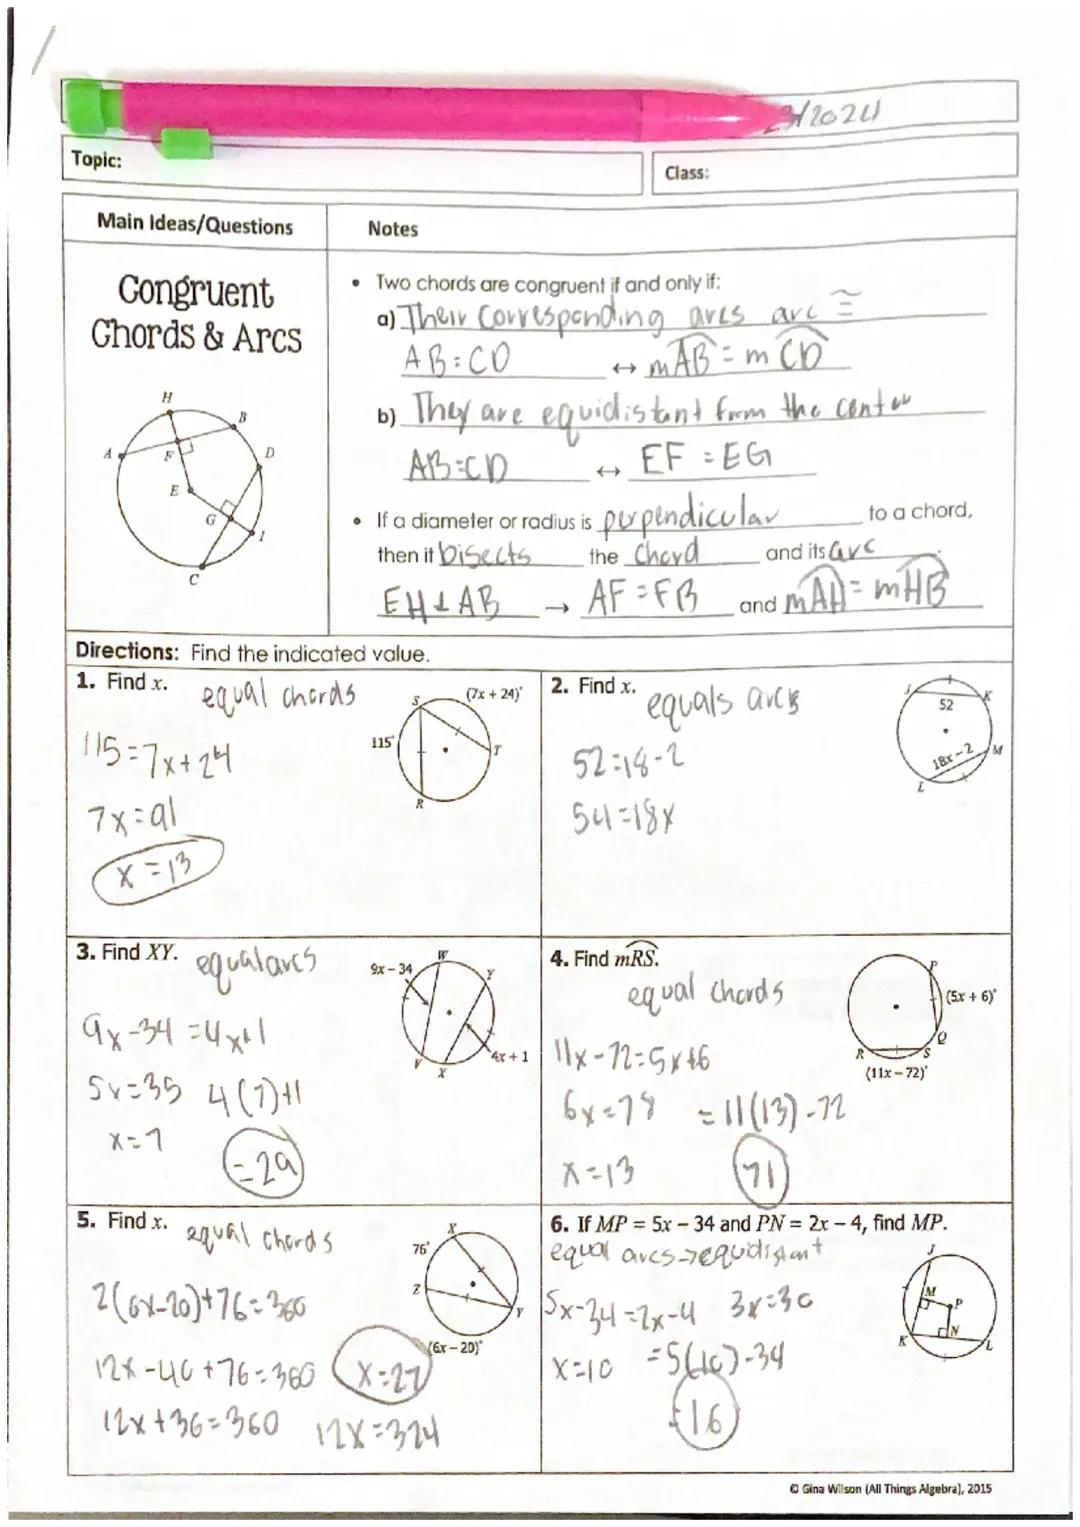 3/2024
Topic:
Class:
Main Ideas/Questions
Notes
Congruent
Chords & Arcs
H
B
A
F
D
E
G
I
C
• Two chords are congruent if and only if:
a) Their Corresponding arcs arc ≅
AB = CD ↔ mAB = m CD
b) They are equidistant from the center
AB=CD ↔ EF = EG
• If a diameter or radius is perpendicular to a chord,
then it bisects the chord and its arc.
EH ⊥ AB → AF = FB and mAH = mHB
Directions: Find the indicated value.
1. Find x.
equal chords
115 = 7x + 24
7x = 91
x = 13
S
(7x + 24)°
115°
T
R
2. Find x.
equals arcs
52 = 18 - 2
54 = 18x
J
K
52
18x – 2
M
L
3. Find XY.
equal arcs
9x - 34 = 4x+1
5x = 35 4(7)+1
x = 7
= 29
9x – 34
W
Y
4x + 1
V
X
4. Find mRS.
equal chords
11x - 72 = 5x+6
6x = 78 = 11(13) - 72
x = 13
71
P
(5x + 6)°
Q
R
S
(11x – 72)°
5. Find x.
equal chords
2(6x-20)+76=360
12x - 40 + 76 = 360
x = 27
12x + 36 = 360
12x = 324
X
76°
Z
Y
(6x – 20)°
6. If MP = 5x – 34 and PN = 2x – 4, find MP.
equal arcs → equidistant
5x-34 = 2x-4 3x=30
x=10 = 5(10)-34
= 16
J
M
P
N
K
L
© Gina Wilson (All Things Algebra), 2015